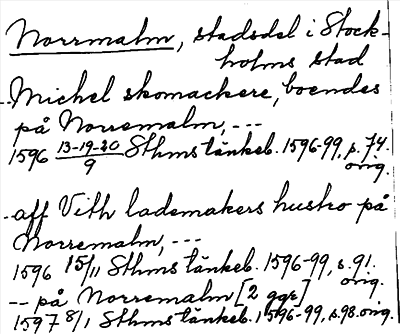 Norrmalm, stadsdel i Stock-
holms stad
-- Michel skomackere, boendes
på Norremalm, ---
1596 13-19-20/9 Sthms tänkeb. 1596-99, s. 74.
orig.
- aff Vith lademakers hustro på
Norremalm, ---
1596 15/11 Sthms tänkeb. 1596-99, s. 91.
orig.
-- på Norremalm [2 ggr]
1597 8/1 Sthms tänkeb. 1596-99, s. 98. orig.